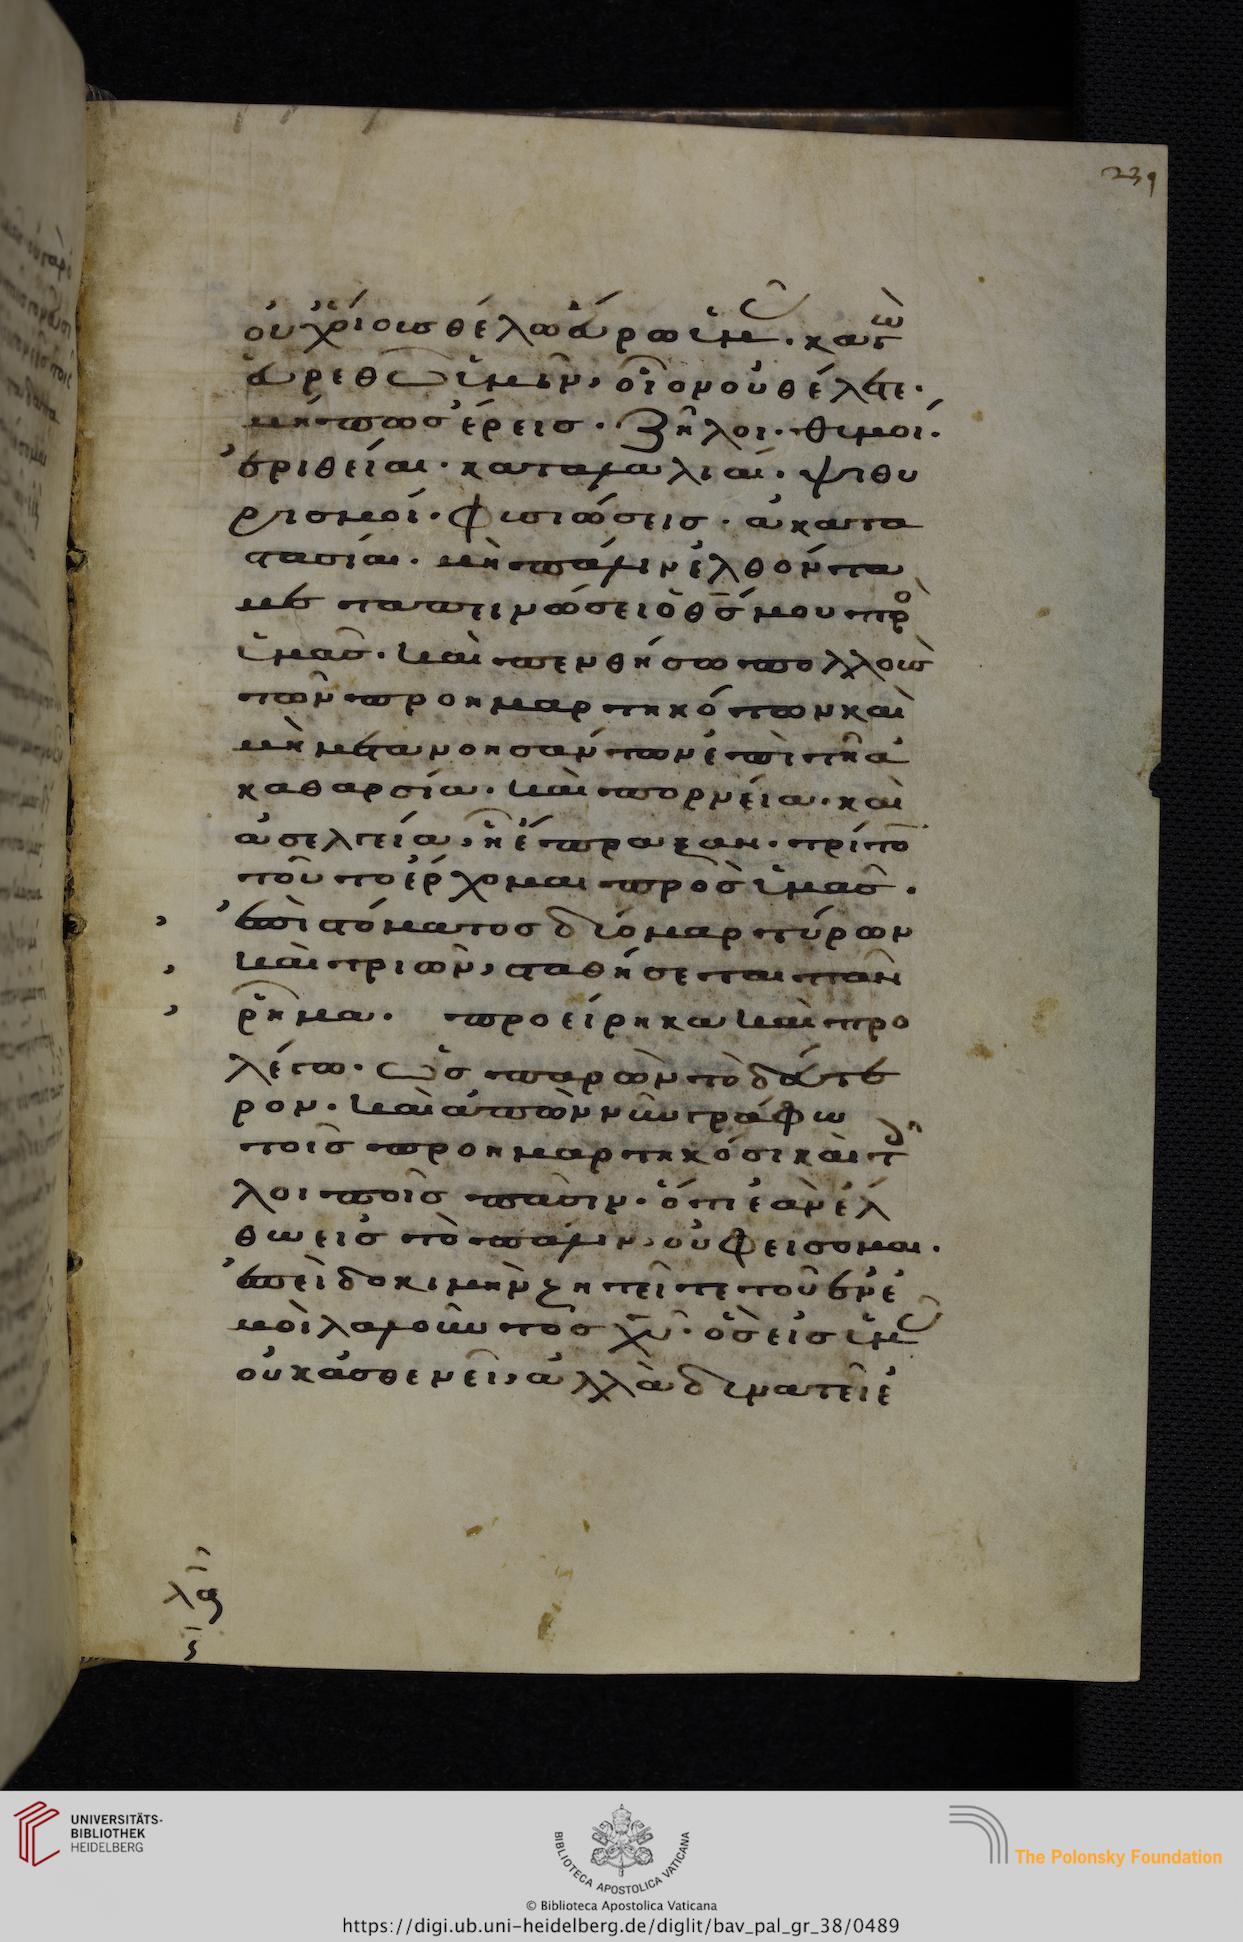 239
οὐχ οἵους θέλω εὕρω ὑμᾶς. κἀγὼ
εὑρεθῶ ὑμῖν, οἷον οὐ θέλετε.
μήπως ἔρεις. ζῆλοι. θυμοί.
ἐριθεῖαι. καταλαλιαί. ψιθυ
ρισμοί. φυσιώσεις. ἀκατα
στασίαι. μὴ πάλιν ἐλθόντα
με ταπεινώσει ὁ θς μου πρὸς
ὑμᾶς. καὶ πενθήσω πολλοὺς
τῶν προημαρτηκότων καὶ
μὴ μετανοησάντων ἐπὶ τῆ ἀ
καθαρσία. καὶ πορνεία. καὶ
ἀσελγεία, ἧ ἔπραξαν. τρίτο
τοῦτο ἔρχομαι πρὸς ὑμᾶς.
ἐπὶ στόματος δύο μαρτύρων
καὶ τριῶν, σταθήσεται πᾶν
ῥῆμα. προείρηκα καὶ προ
λέγω. ὡς παρὼν τὸ δεύτε
ρον. καὶ ἀπὼν νῦν γράφω
τοῖς προημαρτηκόσι καὶ τοῖς
λοιποῖς πᾶσιν. ὅτι ἐὰν ἔλ
θω εἰς τὸ πάλιν, οὐ φείσομαι.
ἐπεὶ δοκιμὴν ζητεῖτε τοῦ ἐν ἐ
μοὶ λαλοῦντος χυ. ὃς εἰς ὑμᾶς
οὐκ ἀσθενεῖ, ἀλλὰ δυνατεῖ ἐ
UNIVERSITÄTS-
BIBLIOTHEK
HEIDELBERG
BIBLIOTECA APOSTOLICA VATICANA
The Polonsky Foundation
© Biblioteca Apostolica Vaticana
https://digi.ub.uni-heidelberg.de/diglit/bav_pal_gr_38/0489